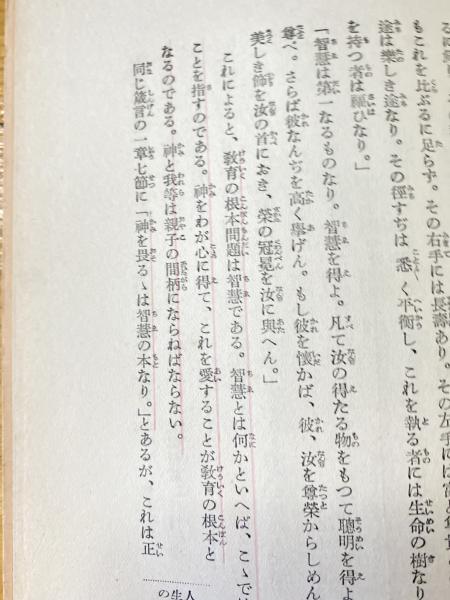 もこれを比ぶるに足らず。その右手には長壽あり。その左手には富と
途は樂しき途なり。その徑すぢは悉く平衡し、これを執る者には生命の樹なり
を持つ者は福ひなり。」
「智慧は第一なるものなり。智慧を得よ。凡て汝の得たる物をもつて聰明を得よ
尊べ。さらば彼なんぢを高く擧げん。もし彼を懷かば、彼、汝を尊榮からしめん
美しき飾を汝の首におき、榮の冠冕を汝に與へん。」
これによると、敎育の根本問題は智慧である。智慧とは何かといへば、こゝで
ことを指すのである。神をわが心に得て、これを愛することが敎育の根本と
なるのである。神と我等は親子の間柄にならねばならない。
同じ箴言の一章七節に「神を畏るゝは智慧の本なり。」とあるが、これは正
人
の生